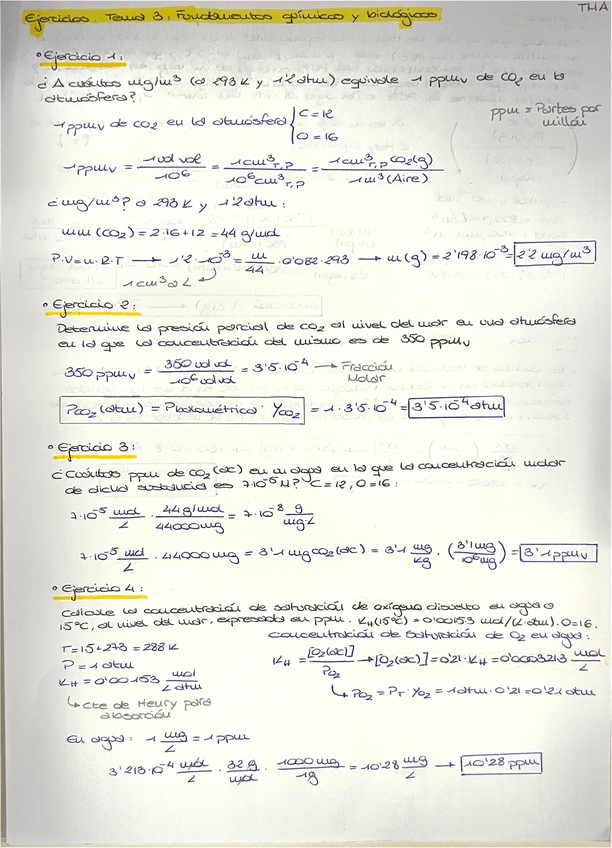 TMA
Ejercicios Tema 3: Fundamentos químicos y biológicos
• Ejercicio 1:
¿A cuántos mg/m³ (a 293 K y 1'2 atm) equivale 1 ppmv de CO₂ en la
atmósfera?
1 ppmv de CO₂ en la atmósfera { C = 12
O = 16
ppm = Partes por
millón
1 ppmv = 1 vol vol / 10⁶ = 1 cm³ T,P / 10⁶ cm³ T,P = 1 cm³ T,P CO₂(g) / 1 m³ (Aire)
¿mg/m³? a 293 K y 1'2 atm:
mm (CO₂) = 2·16+12 = 44 g/mol
P·V = n·R·T → 1'2·10⁻³ = m/44 · 0'082·293 → m(g) = 2'198·10⁻³ = 2'2 mg/m³
1 cm³ a L
• Ejercicio 2:
Determine la presión parcial de CO₂ al nivel del mar en una atmósfera
en la que la concentración del mismo es de 350 ppmv
350 ppmv = 350 vol vol / 10⁶ vol vol = 3'5·10⁻⁴ → Fracción
Molar
PCO₂ (atm) = Pbarométrica · YCO₂ = 1·3'5·10⁻⁴ = 3'5·10⁻⁴ atm
• Ejercicio 3:
¿Cuántos ppm de CO₂ (ac) en un agua en la que la concentración molar
de dicha sustancia es 7·10⁻⁵ M? C = 12, O = 16:
7·10⁻⁵ mol/L · 44 g/mol / 44000 mg = 7·10⁻⁸ g/mg·L
7·10⁻⁵ mol/L · 44000 mg = 3'1 mg CO₂(ac) = 3'1 mg/kg · (3'1 mg / 10⁶ mg) = 3'1 ppmv
• Ejercicio 4:
Calcule la concentración de saturación de oxígeno disuelto en agua a
15°C, al nivel del mar, expresada en ppm. KH (15°C) = 0'00153 mol/(L·atm). O=16.
concentración de saturación de O₂ en agua:
T = 15+273 = 288 K
P = 1 atm
KH = 0'00153 mol/L atm
↳ Cte de Henry para
absorción
KH = [O₂(ac)] / PO₂ → [O₂(ac)] = 0'21·KH = 0'0003213 mol/L
↳ PO₂ = PT · YO₂ = 1 atm · 0'21 = 0'21 atm
En agua: 1 mg/L = 1 ppm
3'213·10⁻⁴ mol/L · 32 g/mol · 1000 mg/1 g = 10'28 mg/L → 10'28 ppm